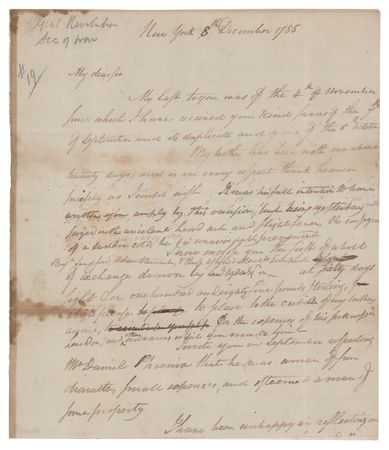 New York 8th December 1786
My dear sir
My last to you was of the 4th of November
since which I have received your kind favors of the
of September and its duplicate and yours of the 5th
My brother has been with me above
twenty days, and is in every respect thank heaven
as I could wish. It was his full intention to have
written you amply by this occasion, but being yesterday
seized with a violent head ach and slight fever, the consequence
of a sudden cold, he is unavoidably prevented.
I now enclose you the first
of exchange drawn by at sixty days
sight for one hundred and eighty five pounds Sterling,
to place to the credit of my brother
for the expences of his
London, and the advances which you
I wrote you in September respecting
Mr Daniel Phoenix that he was a man of fair
character, small expences, and esteemed a man of
some property.
I have been unhappy in reflecting on